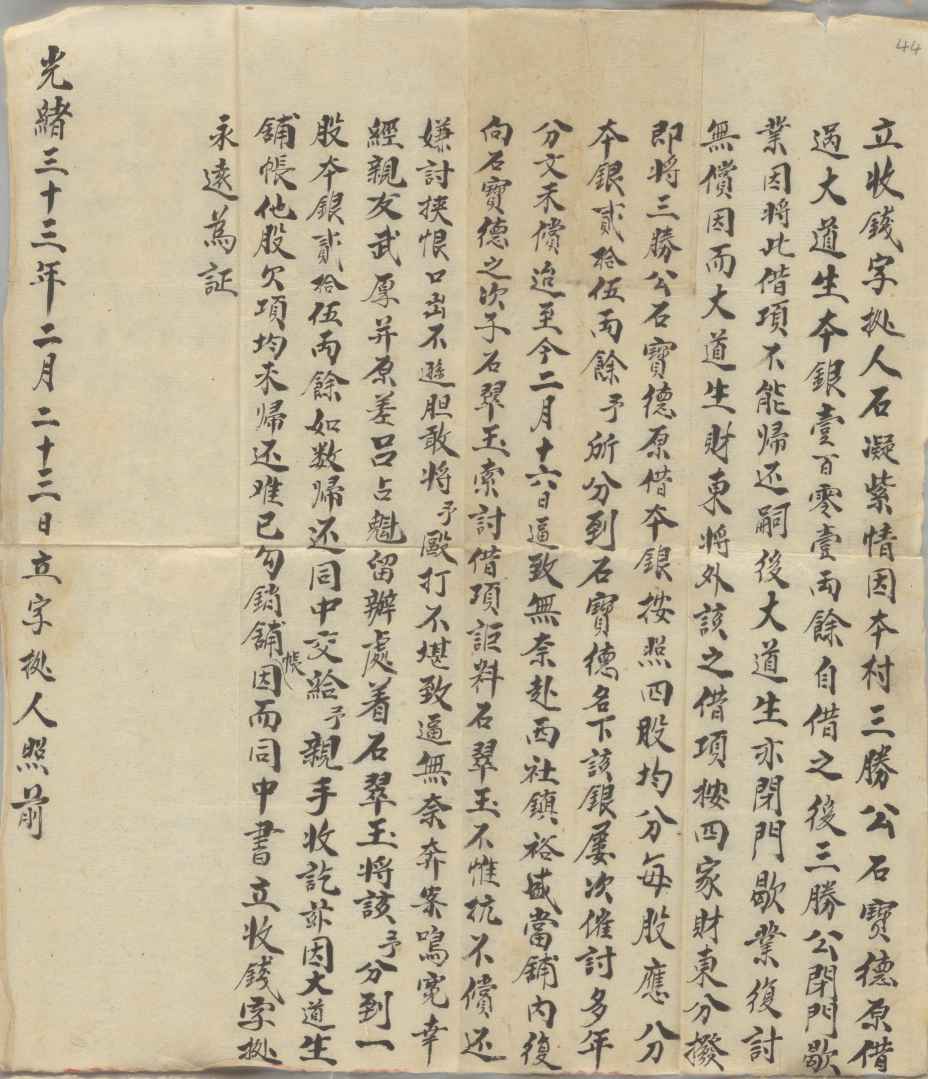 44
立收錢字㨿人石凝紫情因本村三勝公石寶德原借
過大道生本銀壹百零壹兩餘自借之後三勝公閉門歇
業因將此借項不能歸还嗣後大道生亦閉門歇業復討
無償因而大道生財東將外該之借項按四家財東分撥
即將三勝公石寶德原借本銀按照四股均分每股應分
本銀貳拾伍兩餘予所分到石寶德名下該銀屡次催討多年
分文未償迨至今二月十六日逼致無奈赴西社鎮裕盛當舖內復
向石寶德之次子石翠玉索討借項詎料石翠玉不惟抗不償还
嫌討挾恨口出不遜胆敢將予毆打不堪致逼無奈奔案鳴寃幸
經親友武厚并原差呂占魁留辦處着石翠玉將該予分到一
股本銀貳拾伍兩餘如数歸还同中交給予親手收訖茲因大道生
舖帳他股欠項均未歸还难已勾銷舖帳因而同中書立收錢字㨿
永遠為証
光緒三十三年二月二十三日立字㨿人照前